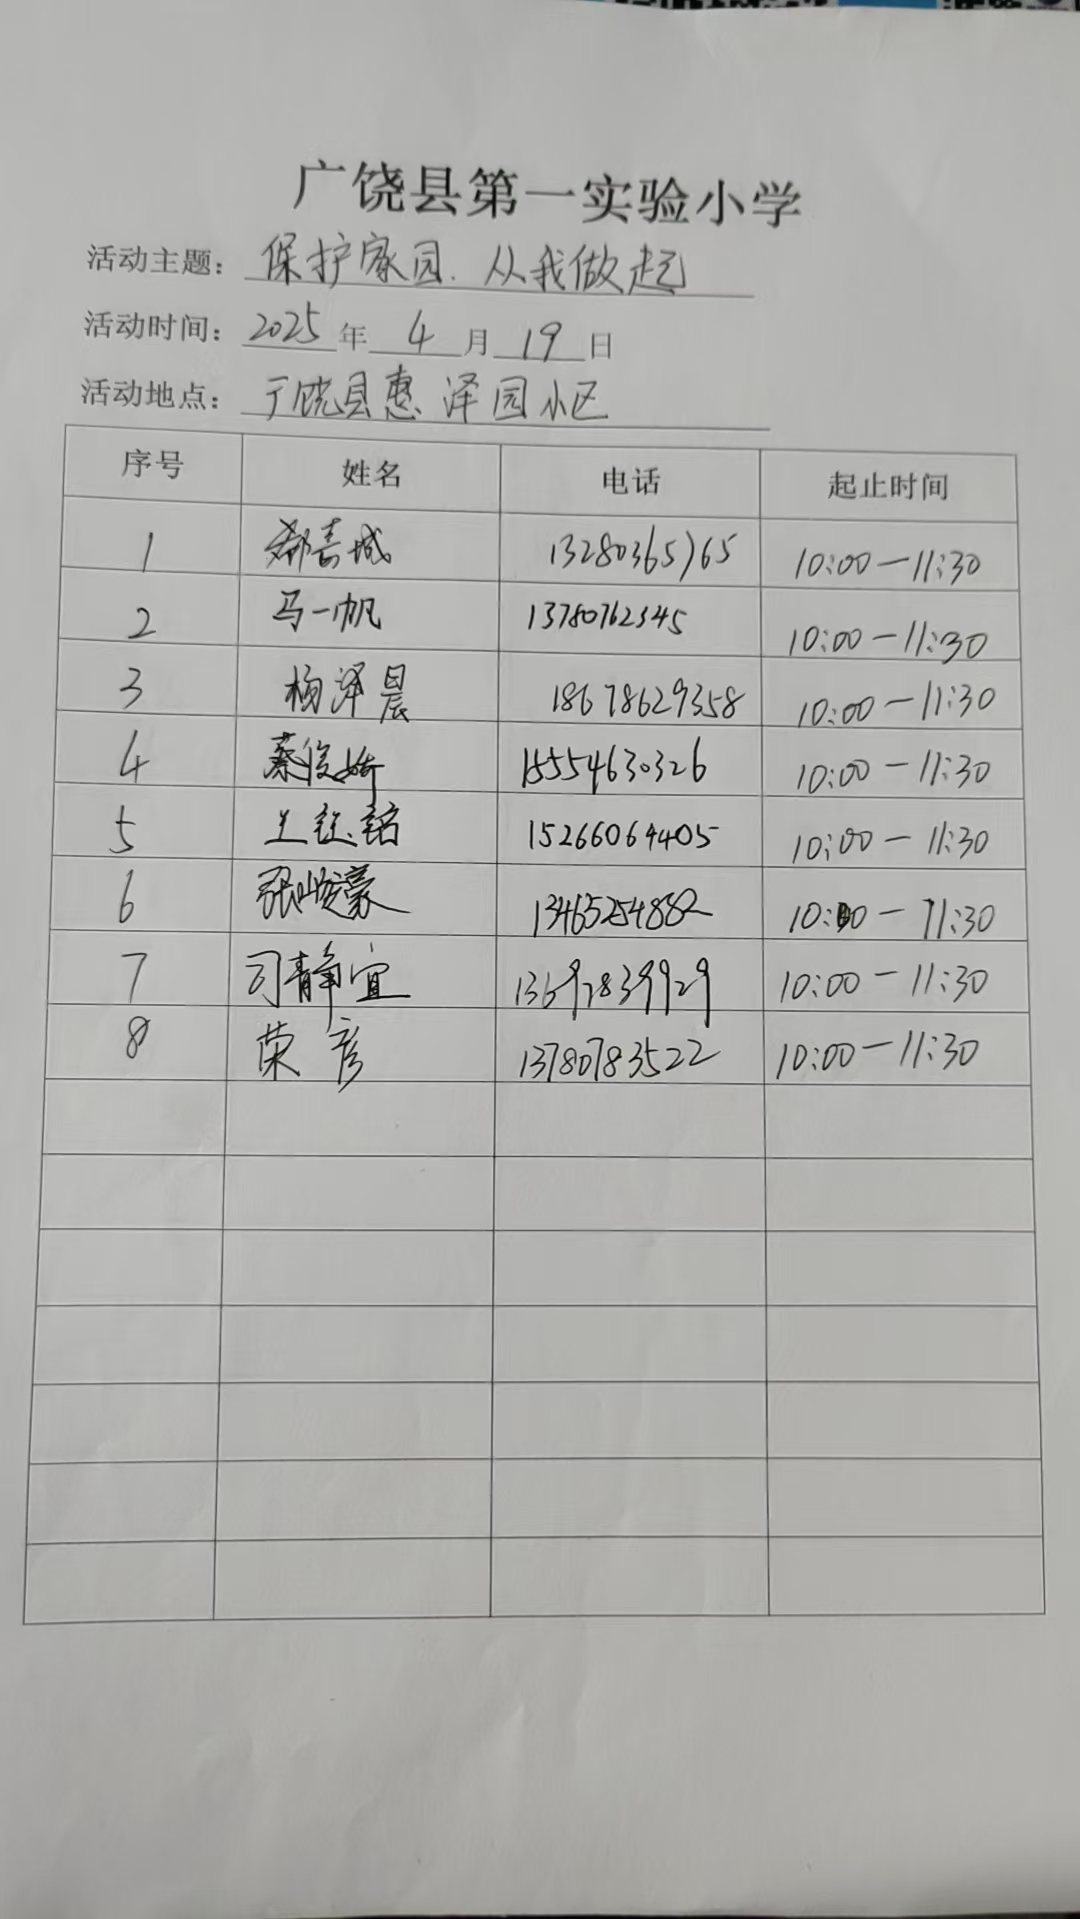 广饶县第一实验小学
活动主题: 保护家园.从我做起
活动时间: 2025 年 4 月 19 日
活动地点: 广饶县惠泽园小区
序号 姓名 电话 起止时间
1 13280365765 10:00—11:30
2 马一帆 13780762345 10:00—11:30
3 杨泽晨 18678629358 10:00—11:30
4 蔡俊婍 15554630326 10:00—11:30
5 15266064405 10:00—11:30
6 张峻豪 13465254882 10:00—11:30
7 司静宜 10:00—11:30
8 荣彦 13780783522 10:00—11:30